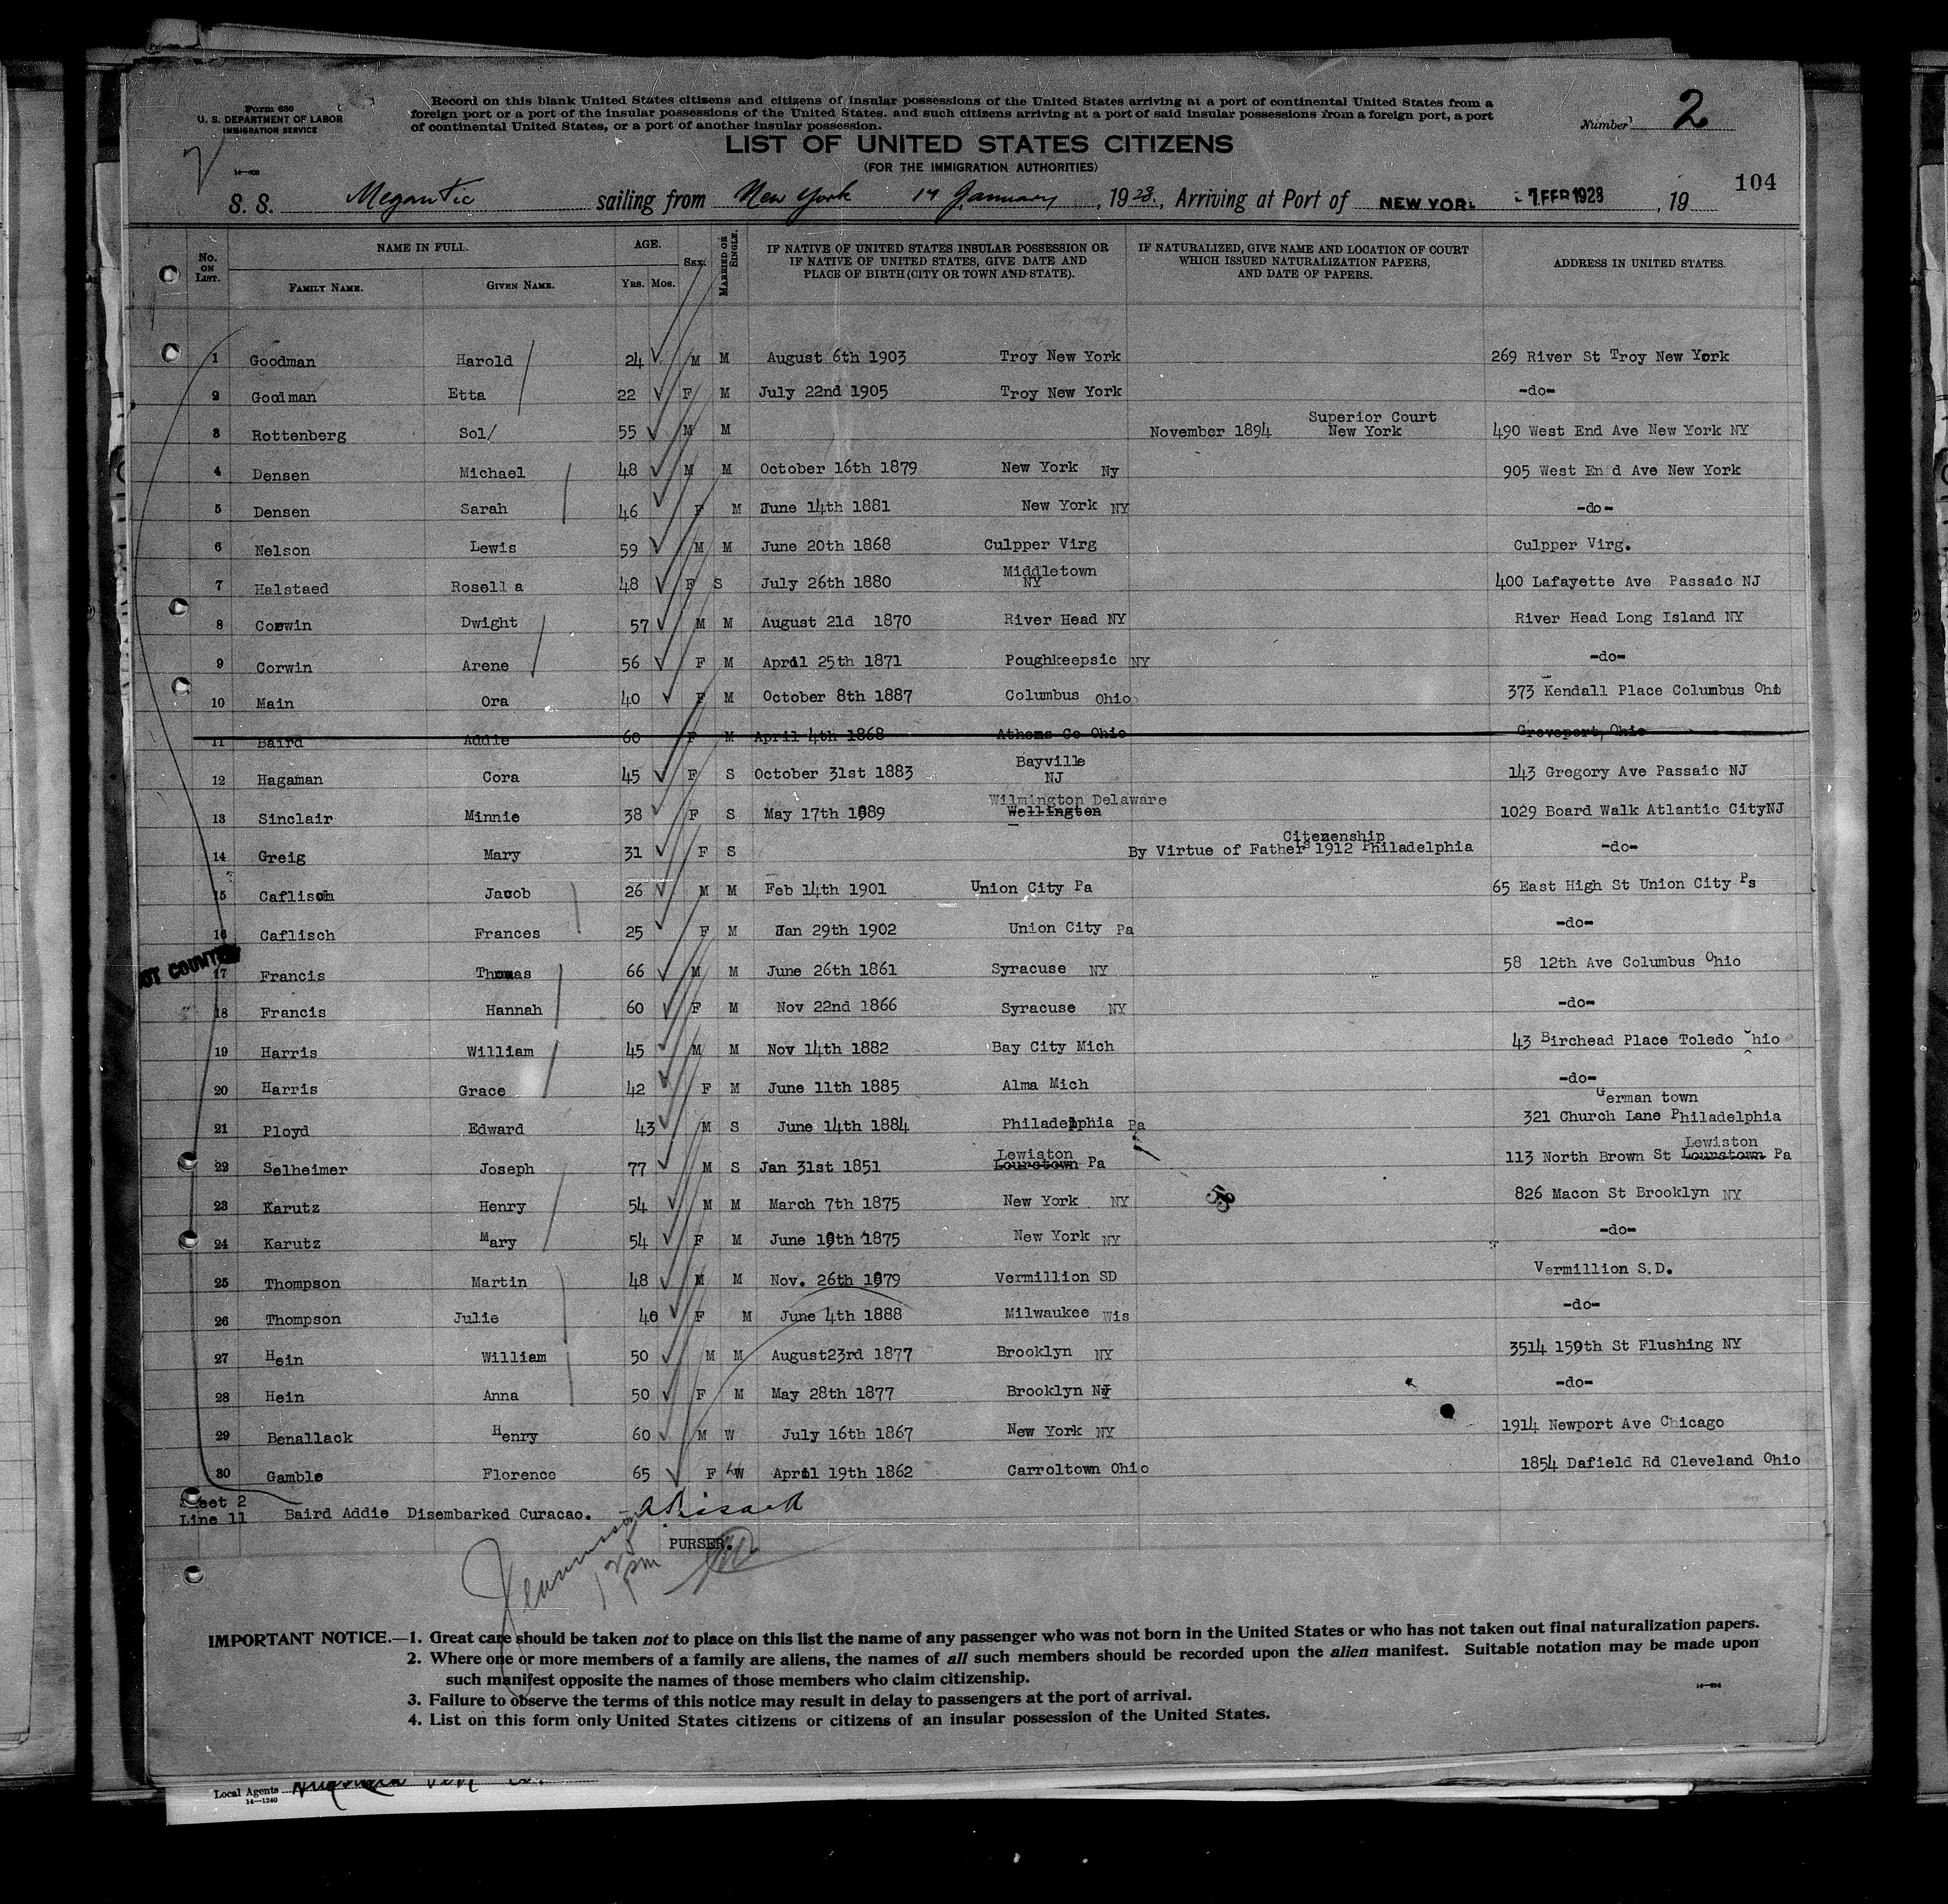 Form 630
U. S. DEPARTMENT OF LABOR
IMMIGRATION SERVICE
Record on this blank United States citizens and citizens of insular possessions of the United States arriving at a port of continental United States from a
foreign port or a port of the insular possessions of the United States. and such citizens arriving at a port of said insular possessions from a foreign port, a port
of continental United States, or a port of another insular possession.
Number 2
LIST OF UNITED STATES CITIZENS
(FOR THE IMMIGRATION AUTHORITIES)
104
S. S. Megantic sailing from New York 19 January, 1928., Arriving at Port of NEW YORK 7 FEB 1928, 19
No. ON LIST. NAME IN FULL. AGE. SEX. MARRIED OR SINGLE. IF NATIVE OF UNITED STATES INSULAR POSSESSION OR IF NATIVE OF UNITED STATES, GIVE DATE AND PLACE OF BIRTH (CITY OR TOWN AND STATE). IF NATURALIZED, GIVE NAME AND LOCATION OF COURT WHICH ISSUED NATURALIZATION PAPERS, AND DATE OF PAPERS. ADDRESS IN UNITED STATES.
FAMILY NAME. GIVEN NAME. YRS. MOS.
1 Goodman Harold 24 M M August 6th 1903 Troy New York 269 River St Troy New York
2 Goodman Etta 22 F M July 22nd 1905 Troy New York -do-
3 Rottenberg Sol/ 55 M M November 1894 Superior Court New York 490 West End Ave New York NY
4 Densen Michael 48 M M October 16th 1879 New York Ny 905 West En d Ave New York
5 Densen Sarah 46 F M June 14th 1881 New York NY -do-
6 Nelson Lewis 59 M M June 20th 1868 Culpper Virg Culpper Virg.
7 Halstaed Rosell a 48 F S July 26th 1880 Middletown NY 400 Lafayette Ave Passaic NJ
8 Corwin Dwight 57 M M August 21d 1870 River Head NY River Head Long Island NY
9 Corwin Arene 56 F M April 25th 1871 Poughkeepsic NY -do-
10 Main Ora 40 F M October 8th 1887 Columbus Ohio 373 Kendall Place Columbus Ohio
11 Baird Addie 60 F M April 4th 1868 Athens Co Ohio Groveport, Ohio
12 Hagaman Cora 45 F S October 31st 1883 Bayville NJ 143 Gregory Ave Passaic NJ
13 Sinclair Minnie 38 F S May 17th 1889 Wilmington Delaware Wellington 1029 Board Walk Atlantic CityNJ
14 Greig Mary 31 F S By Virtue of Fathers Citezenship 1912 Philadelphia -do-
15 Caflisch Jacob 26 M M Feb 14th 1901 Union City Pa 65 East High St Union City Ps
16 Caflisch Frances 25 F M Jan 29th 1902 Union City Pa -do-
NOT COUNTED
17 Francis Thomas 66 M M June 26th 1861 Syracuse NY 58 12th Ave Columbus Ohio
18 Francis Hannah 60 F M Nov 22nd 1866 Syracuse NY -do-
19 Harris William 45 M M Nov 14th 1882 Bay City Mich 43 Birchead Place Toledo hio
20 Harris Grace 42 F M June 11th 1885 Alma Mich -do-
21 Ployd Edward 43 M S June 14th 1884 Philadelphia Pa German town 321 Church Lane Philadelphia
22 Selheimer Joseph 77 M S Jan 31st 1851 Lewiston Lourstown Pa 113 North Brown St Lewiston Lourstown Pa
58
23 Karutz Henry 54 M M March 7th 1875 New York NY 826 Macon St Brooklyn NY
24 Karutz Mary 54 F M June 19th 1875 New York NY -do-
25 Thompson Martin 48 M M Nov. 26th 1879 Vermillion SD Vermillion S.D.
26 Thompson Julie 40 F M June 4th 1888 Milwaukee Wis -do-
27 Hein William 50 M M August23rd 1877 Brooklyn NY 3514 159th St Flushing NY
28 Hein Anna 50 F M May 28th 1877 Brooklyn NY -do-
29 Benallack Henry 60 M W July 16th 1867 New York NY 1914 Newport Ave Chicago
30 Gamble Florence 65 F W April 19th 1862 Carroltown Ohio 1854 Dafield Rd Cleveland Ohio
Sheet 2
Line 11 Baird Addie Disembarked Curacao.
PURSER.
pm
IMPORTANT NOTICE.—1. Great care should be taken not to place on this list the name of any passenger who was not born in the United States or who has not taken out final naturalization papers.
2. Where one or more members of a family are aliens, the names of all such members should be recorded upon the alien manifest. Suitable notation may be made upon
such manifest opposite the names of those members who claim citizenship.
3. Failure to observe the terms of this notice may result in delay to passengers at the port of arrival.
4. List on this form only United States citizens or citizens of an insular possession of the United States.
Local Agents
14—1240